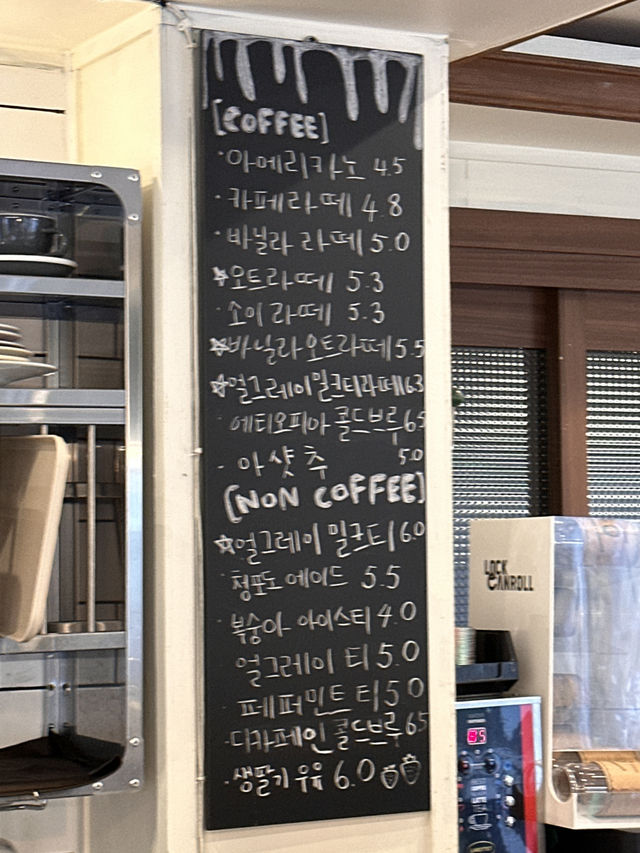 [COFFEE]
· 아메리카노 4.5
· 카페라떼 4.8
· 바닐라 라떼 5.0
☆오트라떼 5.3
· 소이라떼 5.3
☆바닐라오트라떼 5.5
☆얼그레이밀크티라떼 6.3
· 에티오피아 콜드브루 6.5
· 아샷추 5.0
[NON COFFEE]
☆얼그레이 밀크티 6.0
· 청포도에이드 5.5
· 복숭아 아이스티 4.0
얼그레이 티 5.0
· 페퍼민트 티 5.0
· 디카페인 콜드브루 6.5
· 생딸기 우유 6.0
LOCK
CANROLL